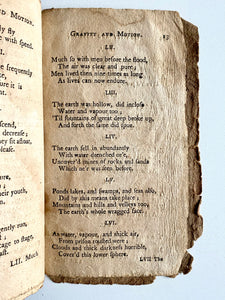 ND MOTION.
with speed.
frequently
ce
ed,
decrease;
it fall
lease.
scend,
gently run,
;
cape to stage,
t.
LII. Much
GRAVITY AND MOTION. 85
LII.
Much so with men before the flood,
The air was clear and pure;
Men lived then nine times as long
As lives can now endure,
LIII.
The earth was hollow, did inclose
Water and vapour too;
'Til fountains of great deep broke up,
And forth the same did spue.
LIV.
The earth fell in abundantly
With water drenched o'er,
Uncover'd mines of rocks and sands
Which ne'er was seen before.
LV.
Ponds lakes, and swamps, and seas also,
Did by this means take place;
Mountains and hills and valleys too,
The earth's whole wragged face.
LVI.
As water, vapours, and thick air,
From prison rousted were;
Clouds and thick darkness horrible,
Cover'd this lower sphere.
LVII The